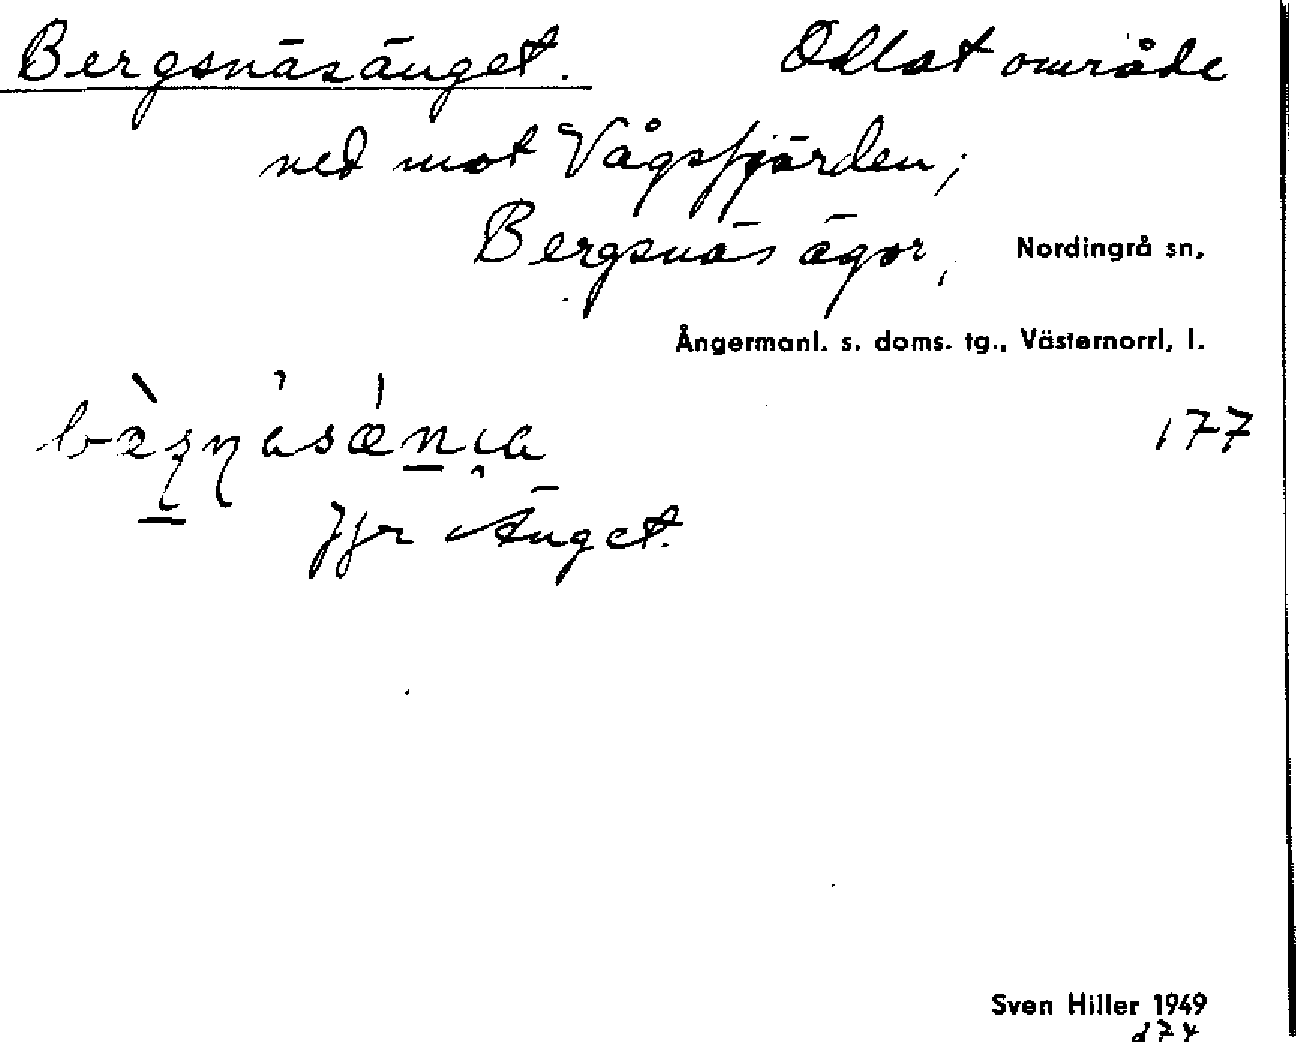 Bergsnäsänget. Odlat område
ned mot Vågsfjärden;
Bergsnäs ägor, Nordingrå sn,
Ångermanl. s. doms. tg., Västernorrl. l.
177
Jfr Änget.
Sven Hiller 1949